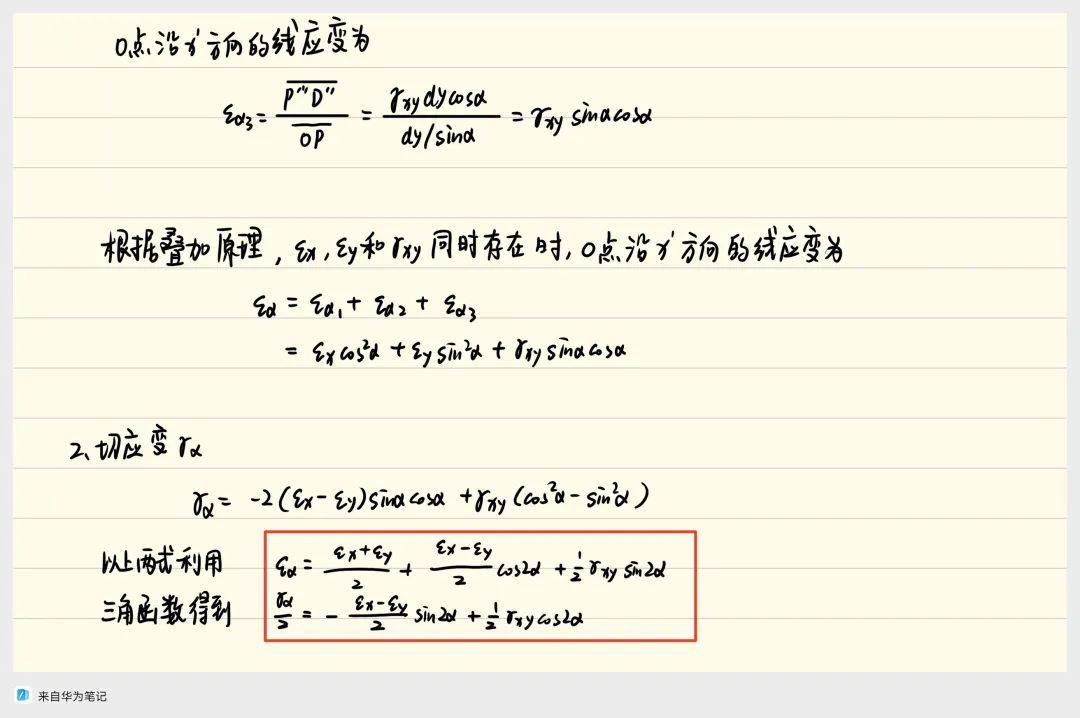 O点沿x'方向的线应变为
εα₃ = P'''D'' / OP = γxy dy cosα / (dy/sinα) = γxy sinα cosα
根据叠加原理，εx, εy和γxy同时存在时，O点沿x'方向的线应变为
εα = εα₁ + εα₂ + εα₃
= εx cos²α + εy sin²α + γxy sinα cosα
2、切应变γα
γα = -2(εx - εy) sinα cosα + γxy (cos²α - sin²α)
以上两式利用
三角函数得到
εα = (εx+εy)/2 + (εx-εy)/2 cos2α + 1/2 γxy sin2α
γα/2 = - (εx-εy)/2 sin2α + 1/2 γxy cos2α
来自华为笔记